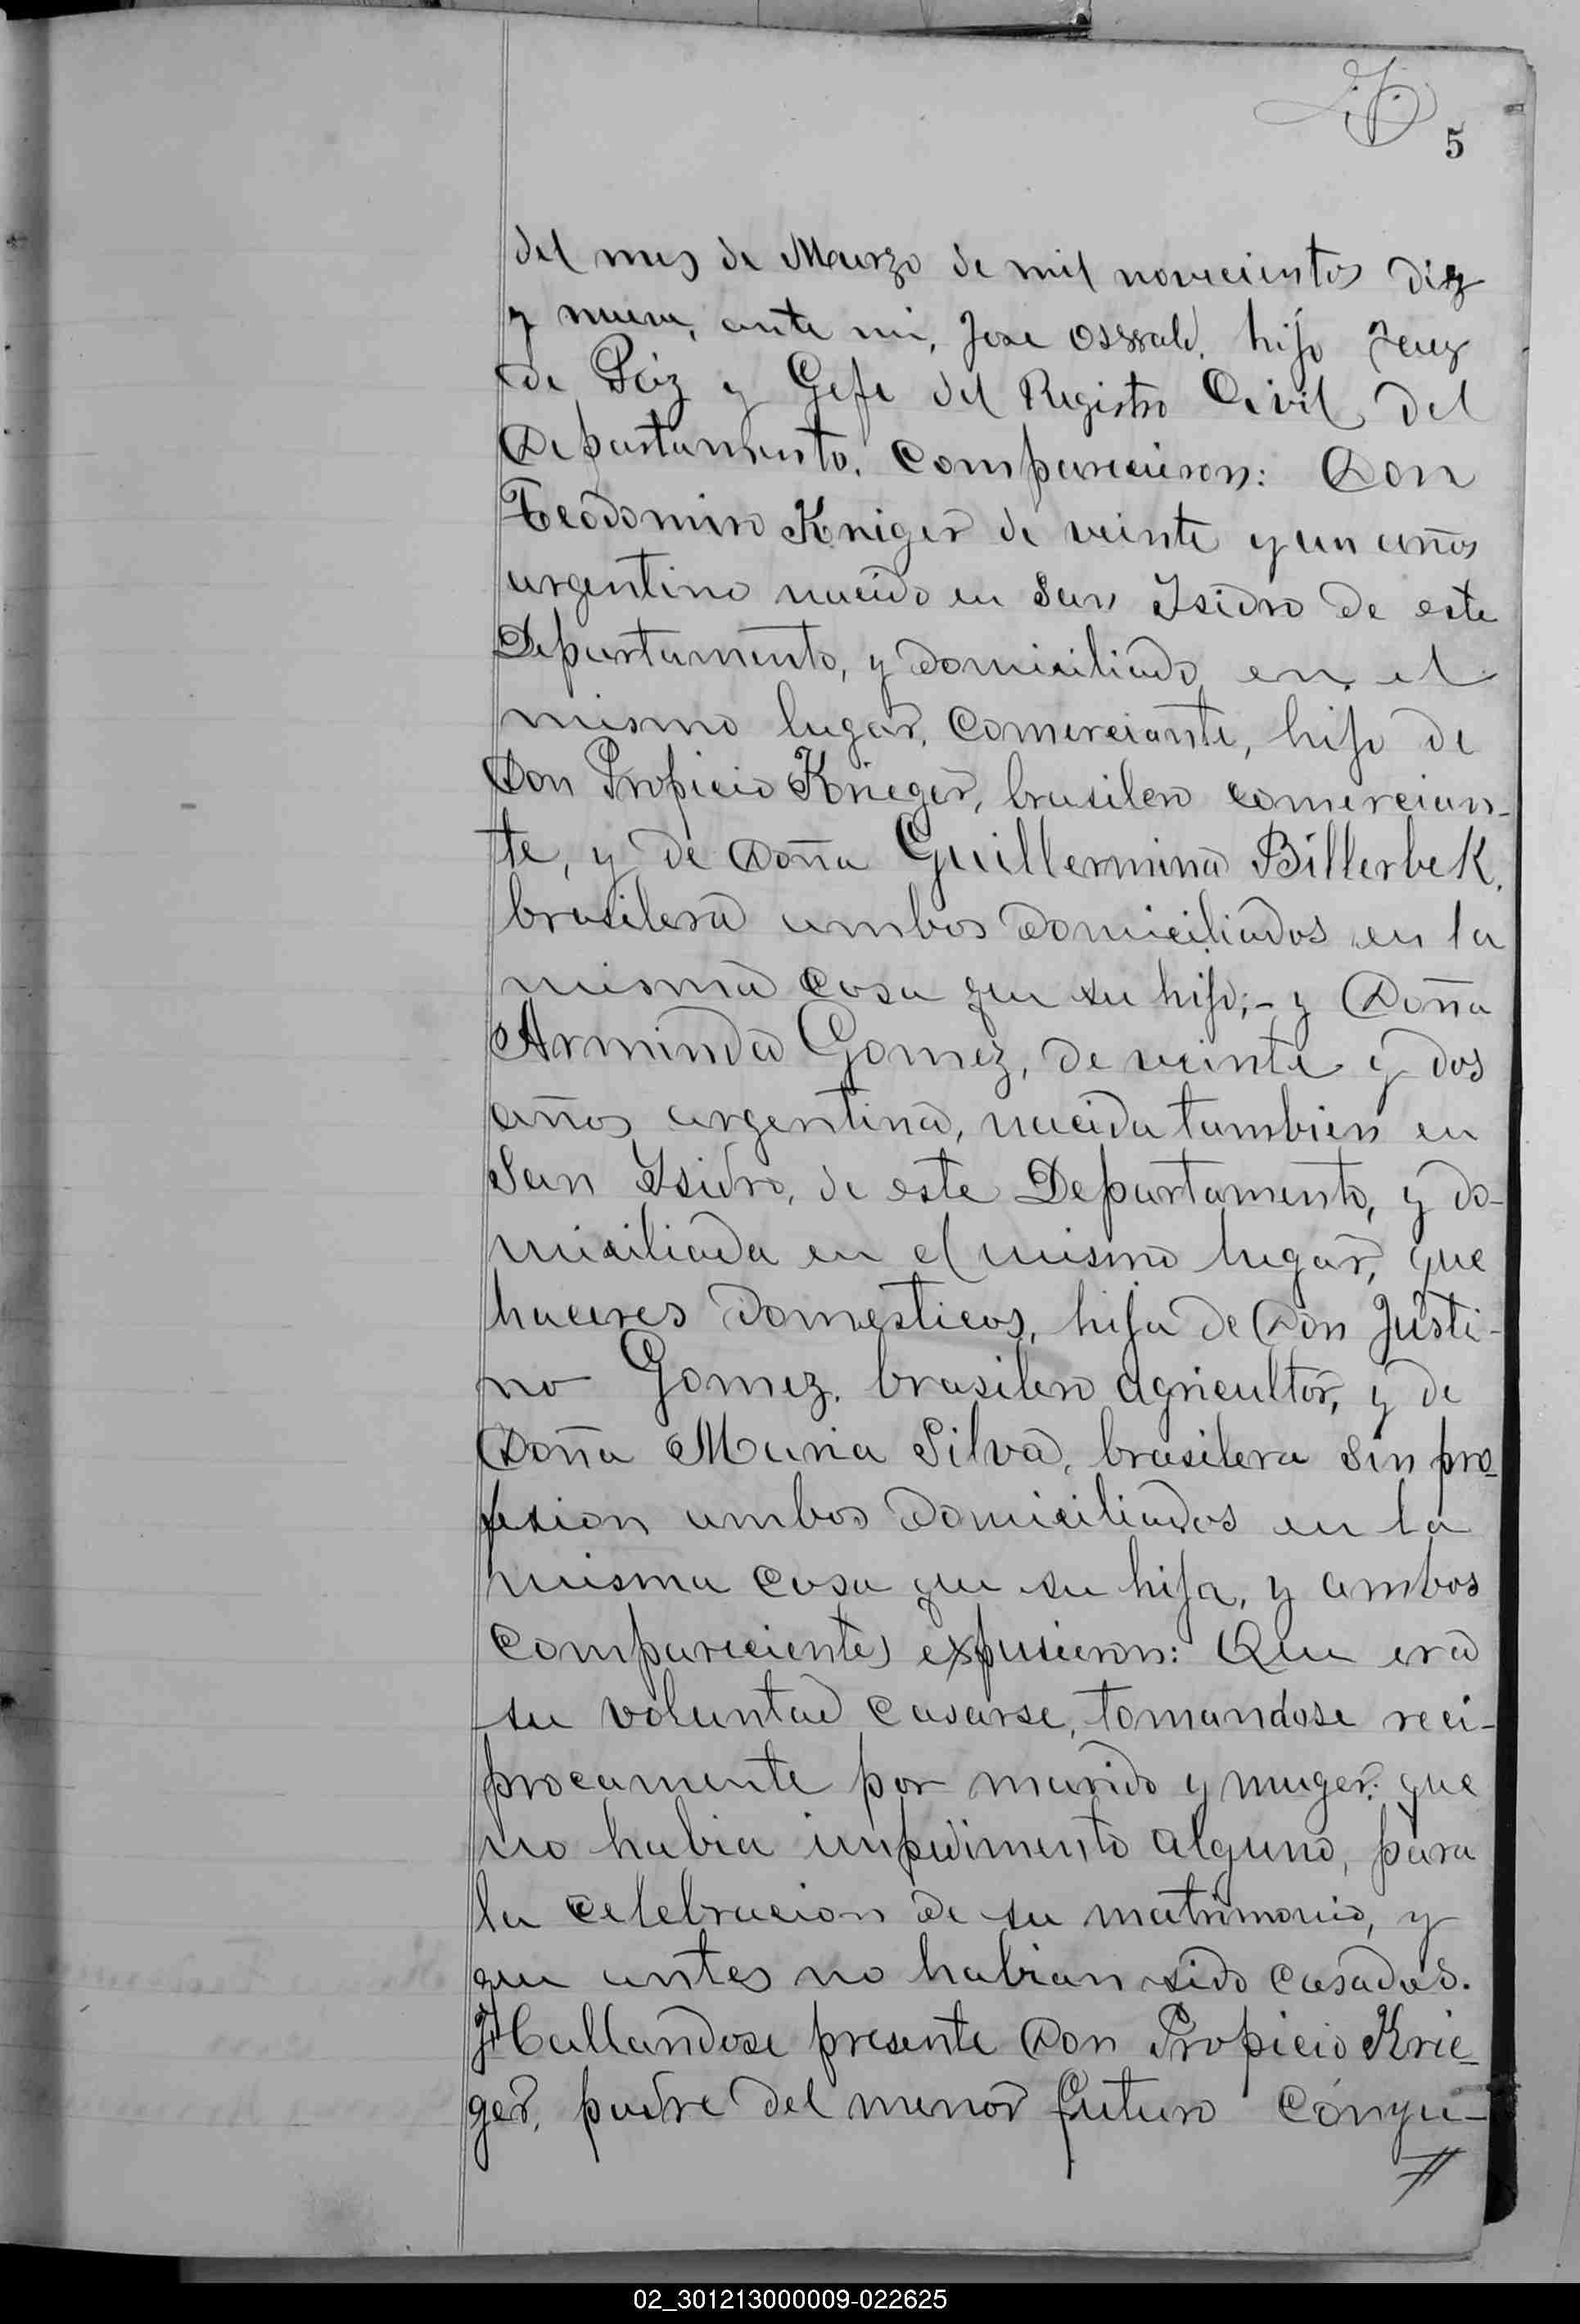 5
del mes de Marzo de mil novecientos diez
y nueve, ante mi, Jose Osswald, hijo Juez
de Páz y Gefe del Registro Civil del
Departamento. Comparecieron: Don
Teodomiro Krieger de veinte y un años
argentino nacido en San Isidro de este
Departamento, y domiciliado en el
mismo lugar, Comerciante, hijo de
Don Propicio Krieger, brasilero comercian-
te, y de Doña Guillermina BillerbeK,
brasilera ambos domiciliados en la
misma casa que su hijo;- y Doña
Arminda Gomez, de veinte y dos
años argentina, nacida tambien en
San Isidro, de este Departamento, y do-
miciliada en el mismo lugar, que
haceres domesticos, hija de Don Justi-
no Gomez, brasilero agricultor, y de
Doña Maria Silva, brasilera sin pro-
fesion ambos domiciliados en la
misma casa que su hija, y ambos
Comparecientes expusieron: Que era
su voluntad casarse, tomandose reci-
procamente por marido y muger: que
no habia impedimento alguno, para
la celebracion de su matrimonio, y
que antes no habian sido casados.
Hallandose presente Don Propicio Krie-
ger, padre del menor futuro cónyu-
02_301213000009-022625